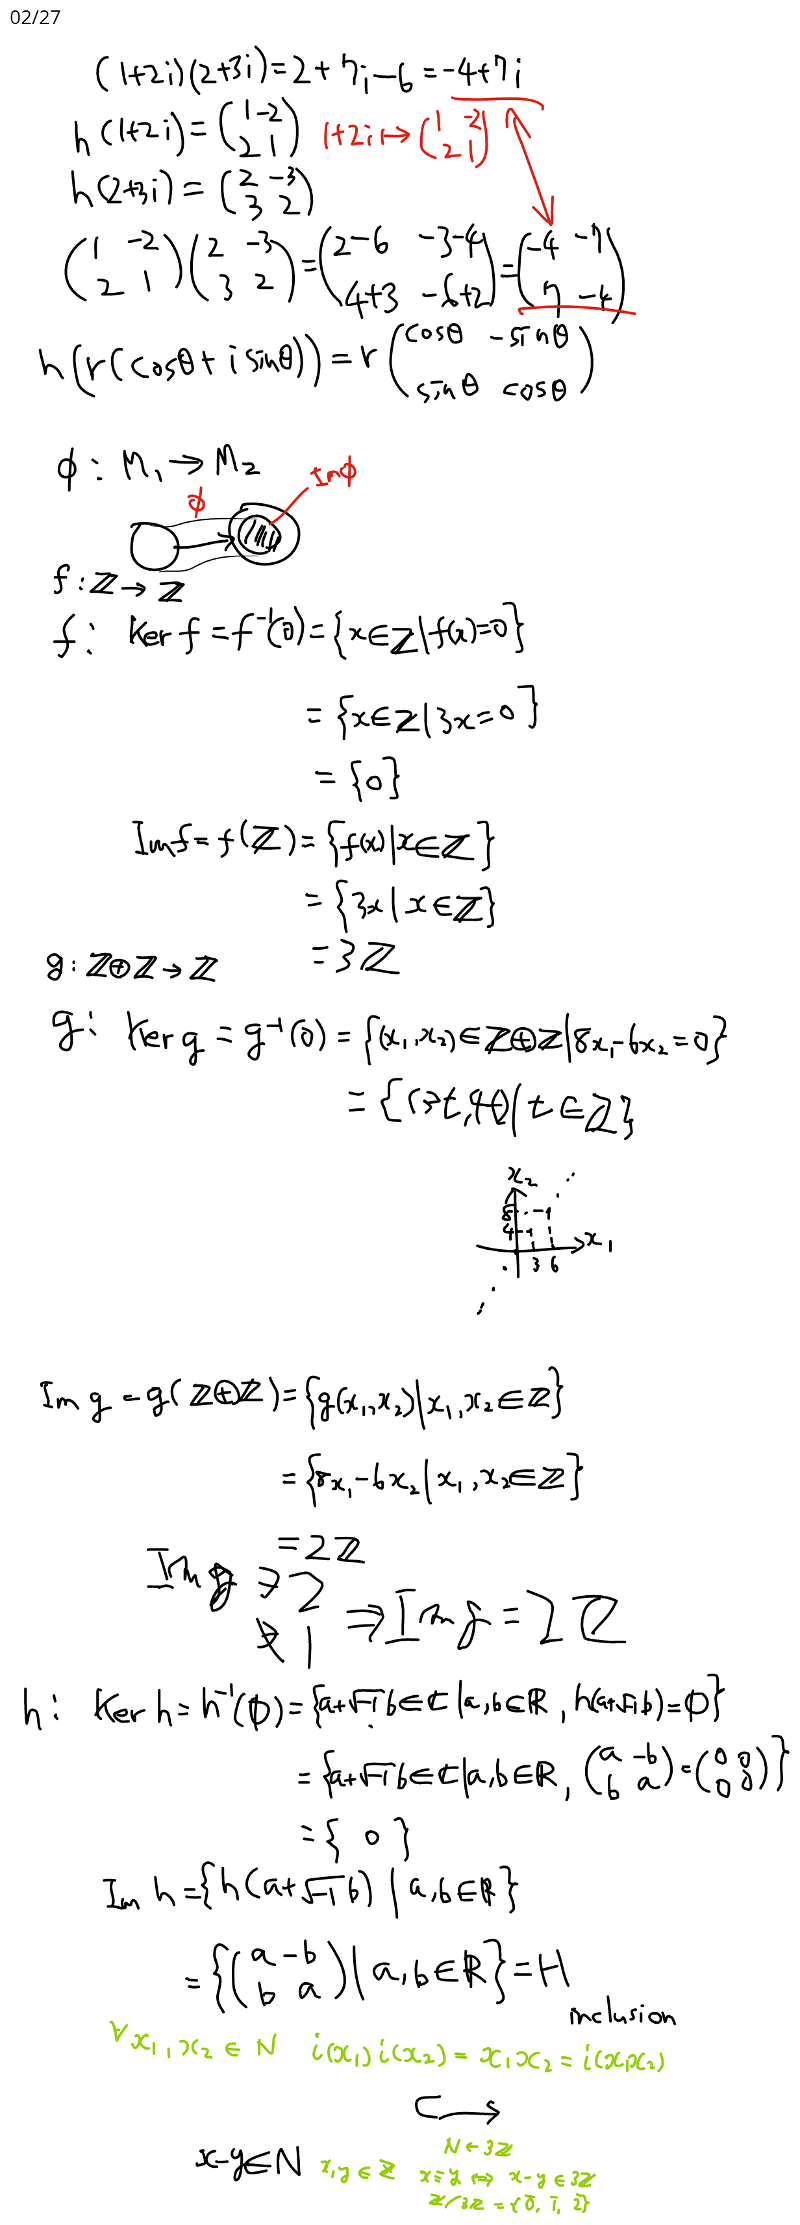 02/27
(1+2i)(2+3i)=2+7i-6=-4+7i
h(1+2i)=(1 -2 2 1) 1+2i↦(1 -2 2 1)
h(2+3i)=(2 -3 3 2)
(1 -2 2 1)(2 -3 3 2)=(2-6 -3-4 4+3 -6+2)=(-4 -7 7 -4)
h(r(cosθ+i sinθ))=r(cosθ -sinθ sinθ cosθ)
φ: M₁→M₂
φ Imφ
f:ℤ→ℤ
f: Ker f=f⁻¹(0)={x∈ℤ|f(x)=0}
={x∈ℤ|3x=0}
={0}
Imf=f(ℤ)={f(x)|x∈ℤ}
={3x|x∈ℤ}
=3ℤ
g:ℤ⊕ℤ→ℤ
g: Ker g=g⁻¹(0)={(x₁,x₂)∈ℤ⊕ℤ|8x₁-6x₂=0}
={(3t,4t)|t∈ℤ}
x₂
8
4
x₁
3 6
Im g=g(ℤ⊕ℤ)={g(x₁,x₂)|x₁,x₂∈ℤ}
={8x₁-6x₂|x₁,x₂∈ℤ}
=2ℤ
Im g ∋ 2
∌ 1 ⇒Im g=2ℤ
h: Ker h=h⁻¹(O)={a+√-1b∈ℂ|a,b∈ℝ, h(a+√-1b)=O}
={a+√-1b∈ℂ|a,b∈ℝ, (a -b b a)=(0 0 0 0)}
={0}
Im h={h(a+√-1b)|a,b∈ℝ}
={(a -b b a)|a,b∈ℝ}=H
inclusion
∀x₁,x₂∈N i(x₁)i(x₂)=x₁x₂=i(x₁x₂)
↪
N←3ℤ
x-y∈N x,y∈ℤ x≡y⇔x-y∈3ℤ
ℤ/3ℤ={0̄,1̄,2̄}